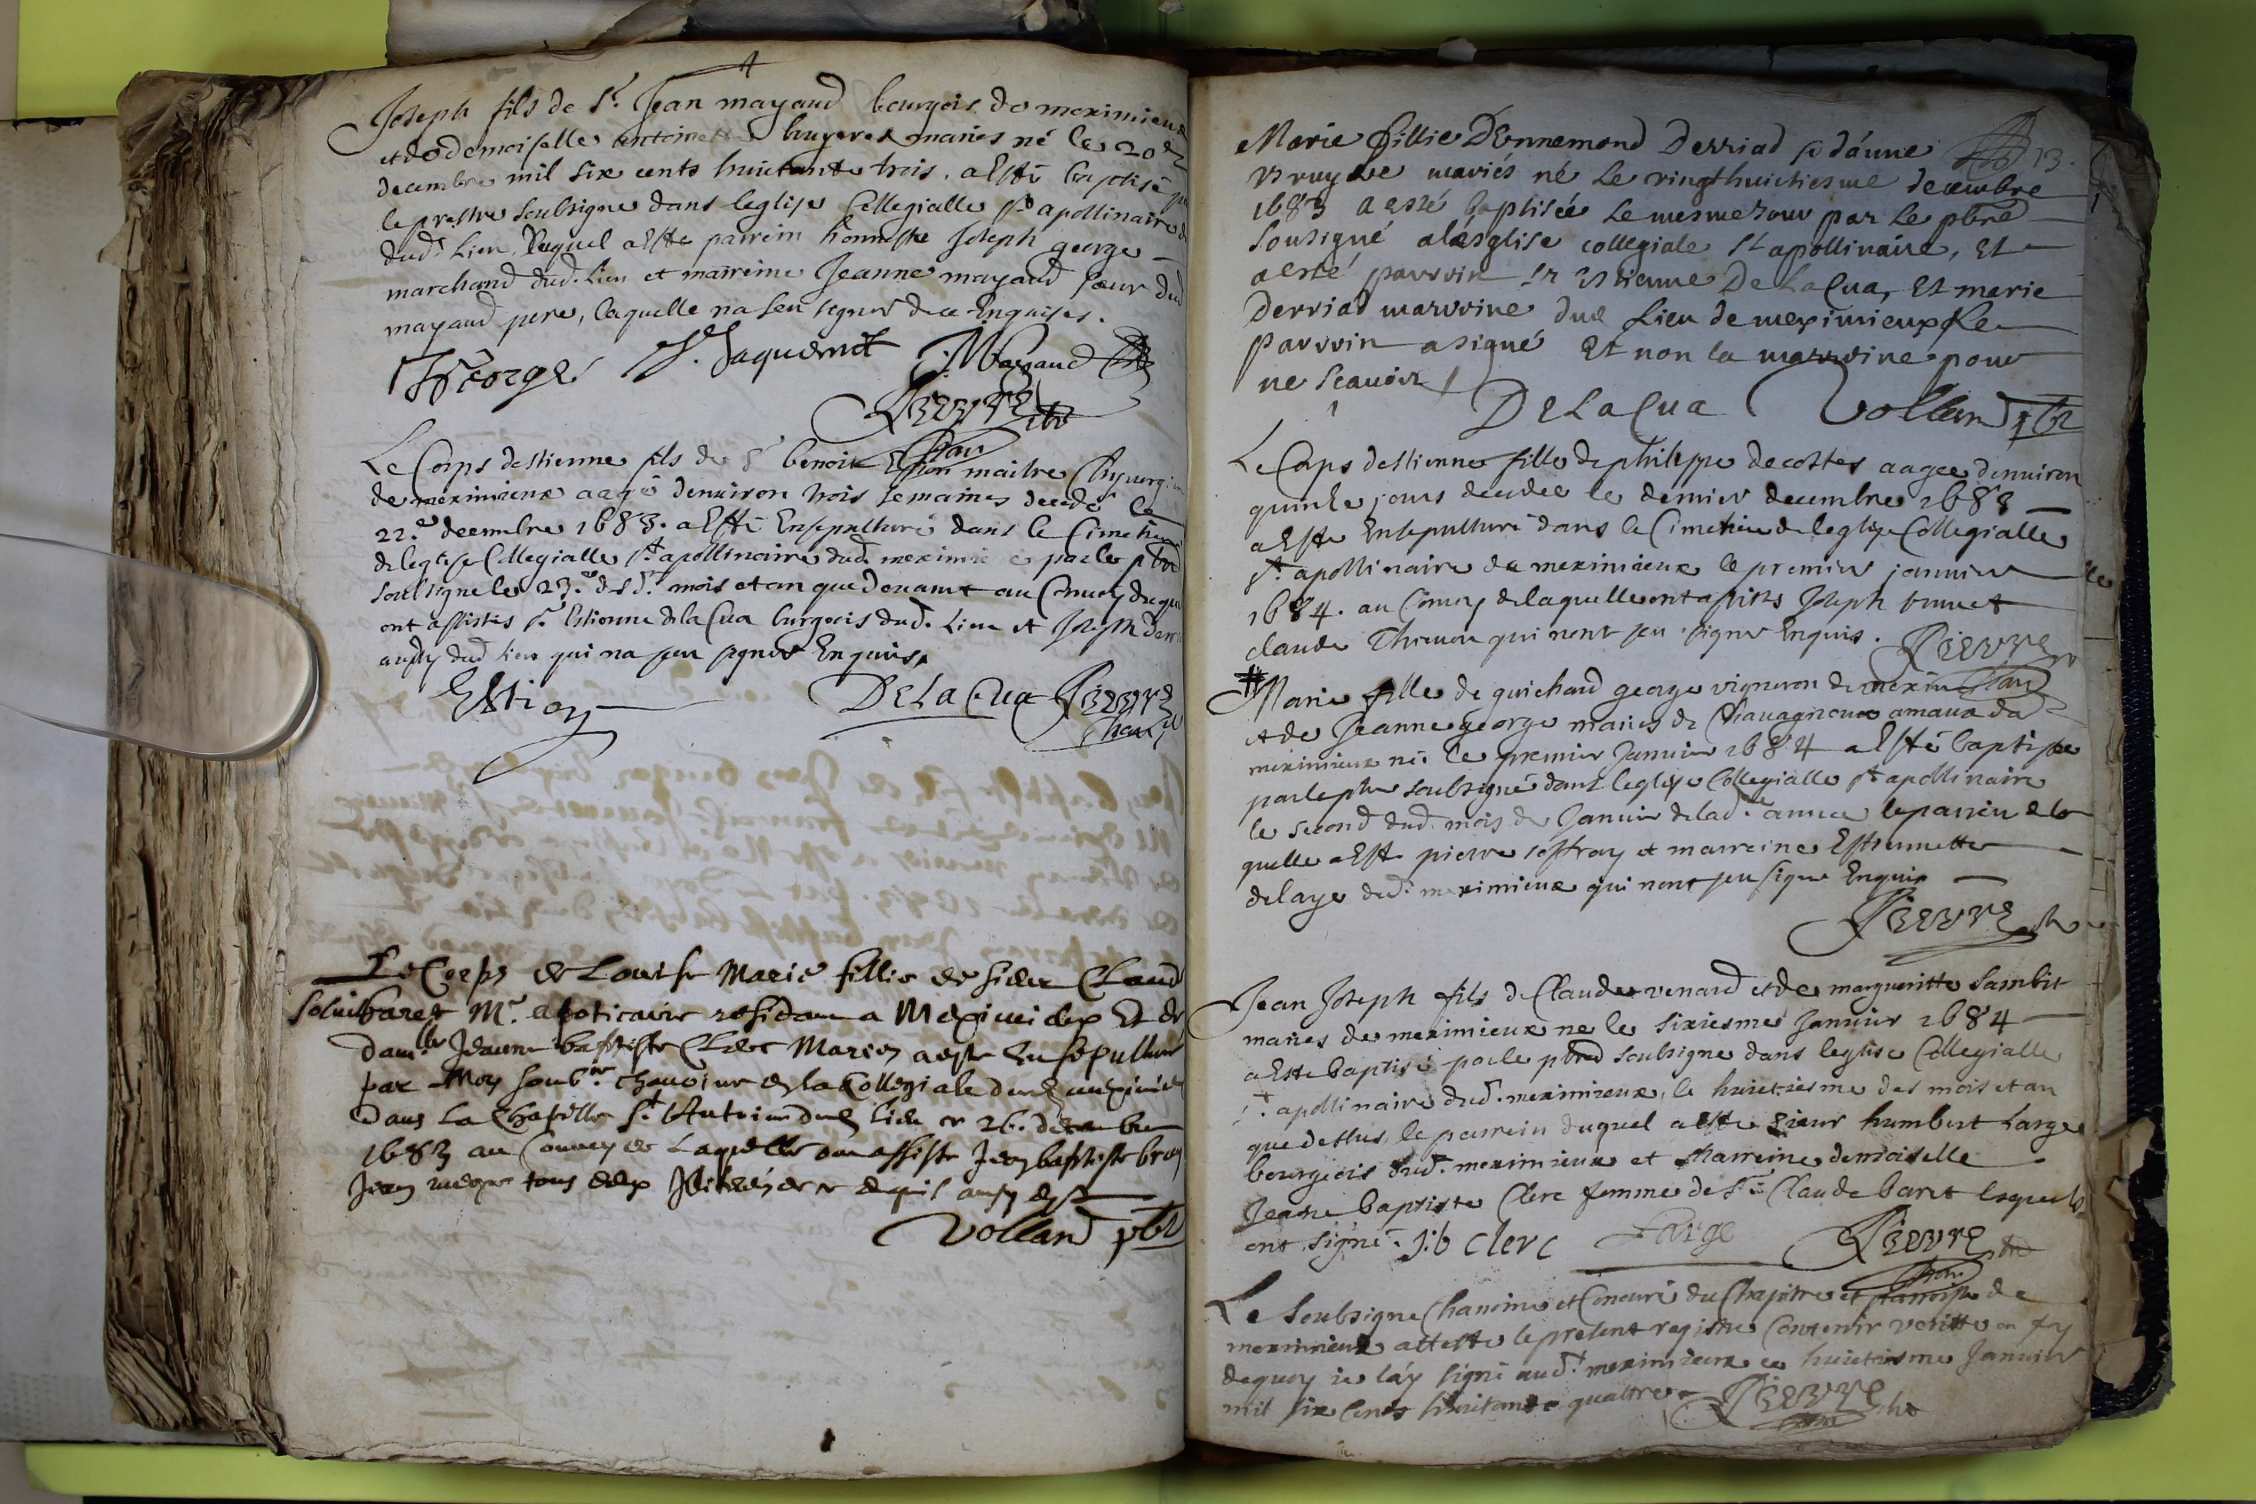 Joseph fils de Sr. Jean mayaud bourgois de meximieux
et de demoiselle antoinette bruyere maries né le 20e
decembre mil six cents huictante trois. a esté baptisé
le prestre soubsigne dans leglise Collegialle St apollinaire
dud. Lieu Duquel a este parrein honneste Joseph george
marchand dud. Lieu et marreine Jeanne mayaud soeur dud
mayaud pere, laquelle na seu signer de ce Enquises.
George J. Jaquemet J. Mayaud
Le Corps destienne fils de Sr benoit maitre Chyrurgien
de meximieux aagé denuiron trois semaines decedé le
22.e decembre 1683. a Esté Ensepulturé dans le Cimetiere
de leglise Collegialle St apollinaire dud. meximieux par le pbre
soubsigne le 23.e desd. mois et an que deuant au Conuoy duquel
ont assistés Sr. Estienne de la Cua burgeois dud. Lieu et Joseph
aussy dud lieu qui na seu signer Enquis.
De La Cua
Le Corps de Louise Marie fillie de sieur Claude
baret Mr. apoticaire residant a Meximieux Et de
damlle Jeanne baptiste Clerc Maries a esté Ensepulturé
par Moy soubné. chanoine de la Collegiale dud meximieux
Dans La Chapelle St Antoine dud lieu ce 26. decembre
1683 au Conuoy de Laquelle ont assisté Jean baptiste
Jean tous deux
Volland pbr
13.
Marie fillie D'Ennemond Derriad et d'anne
Bruyere mariés né Le vingt huictiesme decembre
1683 a esté baptisée Le mesme Jour par Le pbre
Sousigné a l'esglise collegiale St apollinaire, Et
a esté parrein Sr Estienne De La Cua, Et marie
Derriad marreine dud Lieu de meximieux Le
Parrein a signé Et non la marreine pour
ne Scauoir
De La Cua Volland pbr
Le Corps destienne fille de philippe decostes aagee denuiron
quinze jours decedee le dernier decembre 1683
a Esté Ensepulturé dans le Cimetiere de leglise Collegialle
St. apollinaire de meximieux le premier januier
1684. au Conuoy de laquelle ont assistés Joseph brunet
claude qui nont seu signer Enquis.
Marie fille de guichard george vigneron de meximieux
et de Jeanne george maries de
meximieux né le premier Januier 1684 a Esté baptisee
par le pbre soubsigné dans leglise Collegialle St apollinaire
le second dud. mois de Januier de lad. annee le parrein de la
quelle a Esté pierre Joffray et marreine Estiennette
delaye dud. meximieux qui nont seu signe Enquis
Jean Joseph fils de Claude venard et de margueritte Sambit
maries de meximieux ne le sixiesme Januier 1684
a Este baptisé par le pbre soubsigne dans leglise Collegialle
St. apollinaire dud. meximieux, le huictiesme des mois et an
que dessus, le parrein duquel a esté sieur humbert Large
bourgeois dud. meximieux et Marreine demoiselle
Jeane baptiste Clerc femme de Sr Claude baret lesquels
ont signé. J:b clerc Large
Le Soubsigne Chanoine et Concuré du Chapitre et parroisse de
meximieux atteste le present registre Contenir veritté en foy
dequoy ie lay signé aud. meximieux ce huictiesme Januier
mil six cents huictante quattre